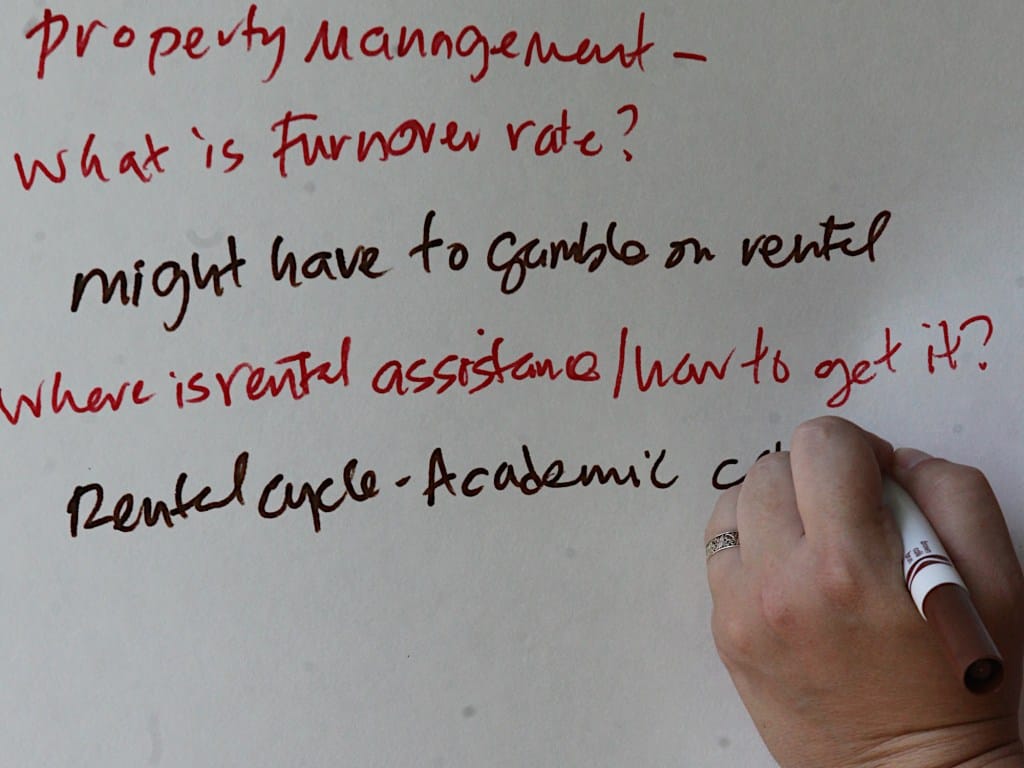 Property Management -
What is Turnover rate?
might have to gamble on rental
Where is rental assistance/how to get it?
Rental cycle - Academic